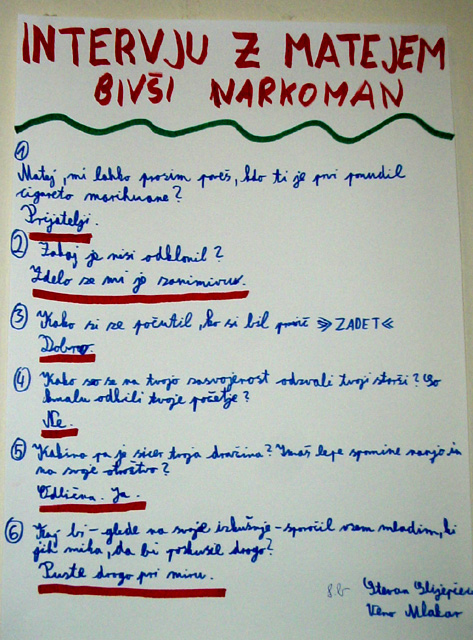 INTERVJU Z MATEJEM
BIVŠI NARKOMAN
1
Matej, mi lahko prosim poveš, kdo ti je prvi ponudil
cigareto marihuane?
Prijatelji.
2 Zakaj je nisi odklonil?
Zdelo se mi je zanimivo.
3 Kako si se počutil, ko si bil prvič »ZADET«
Dobro.
4 Kako so se na tvojo zasvojenost odzvali tvoji starši? So
kmalu odkrili tvoje početje?
Ne.
5 Kakšna pa je sicer tvoja družina? Imaš lepe spomine nanjo in
na svoje otroštvo?
Odlična. Ja.
6 Kaj bi - glede na svoje izkušnje - sporočil vsem mladim, ki
jih mika, da bi poskusil drogo?
Puste drogo pri miru.
8.b Stevan
Veno Mlakar